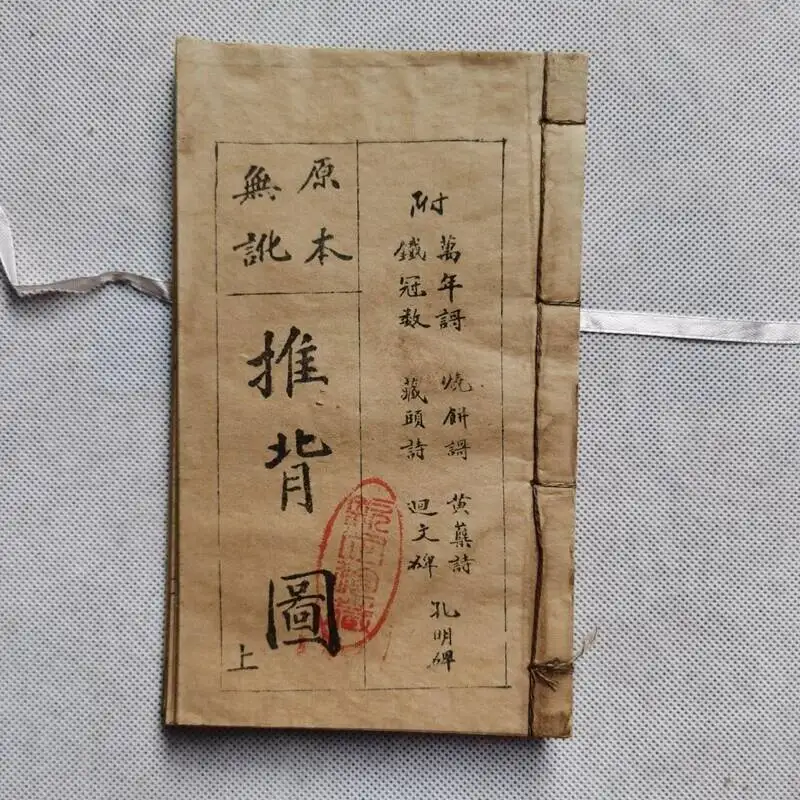 附
萬年謌 燒餅謌 黄蘗詩
鐵冠数 藏頭詩 迴文碑
孔明碑
原本
無訛
推背圖
上